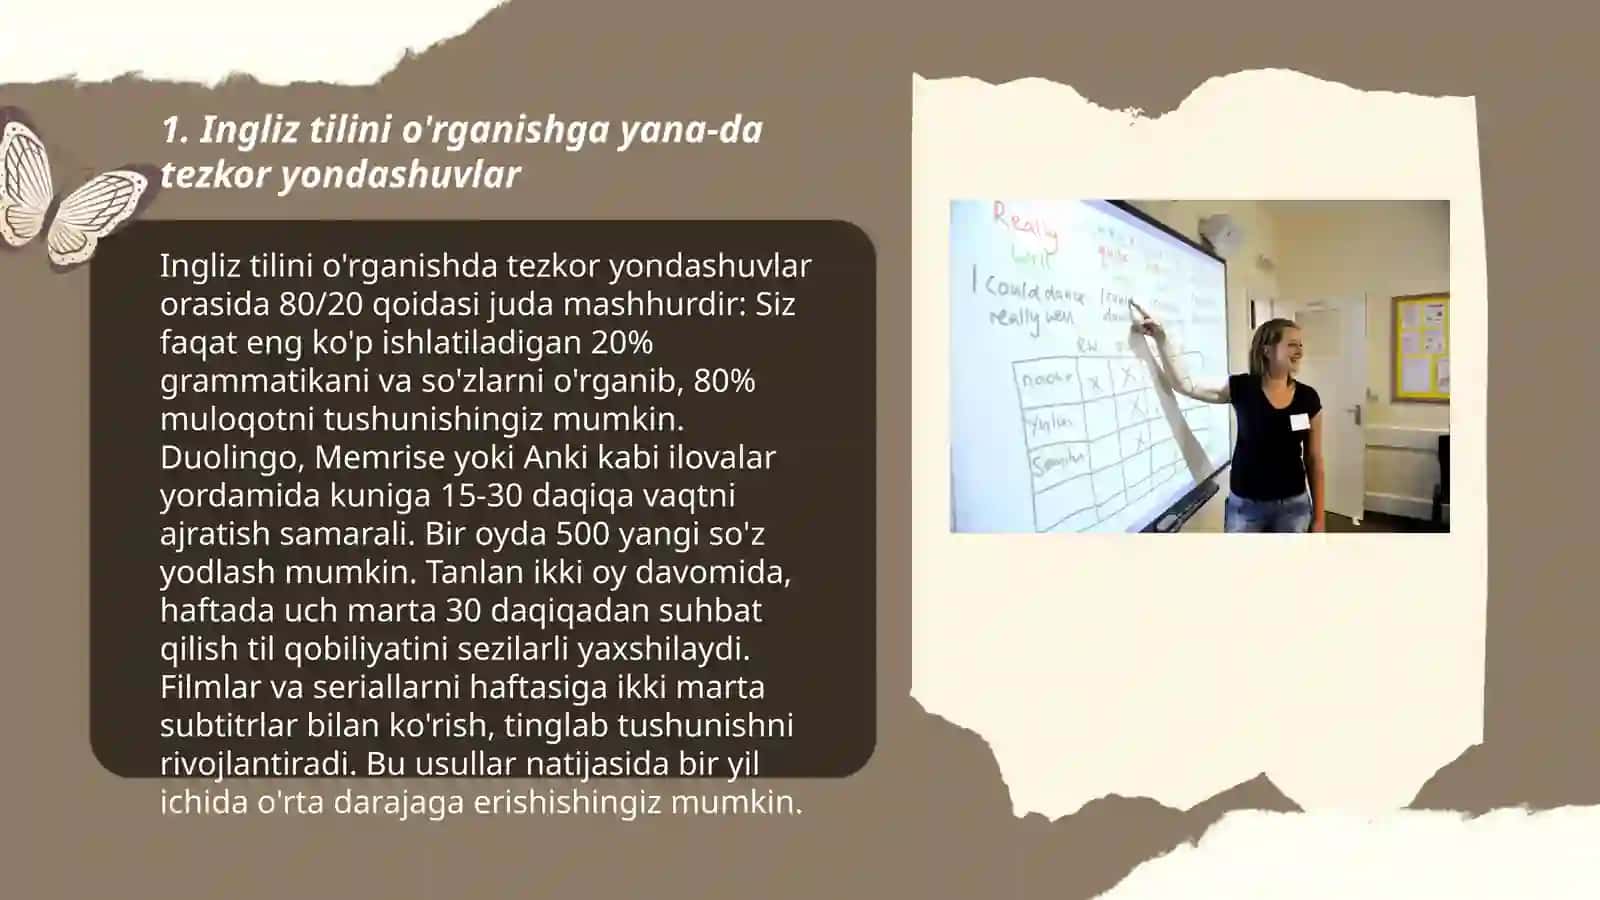 1. Ingliz tilini o'rganishga yana-da
tezkor yondashuvlar
Ingliz tilini o'rganishda tezkor yondashuvlar
orasida 80/20 qoidasi juda mashhurdir: Siz
faqat eng ko'p ishlatiladigan 20%
grammatikani va so'zlarni o'rganib, 80%
muloqotni tushunishingiz mumkin.
Duolingo, Memrise yoki Anki kabi ilovalar
yordamida kuniga 15-30 daqiqa vaqtni
ajratish samarali. Bir oyda 500 yangi so'z
yodlash mumkin. Tanlan ikki oy davomida,
haftada uch marta 30 daqiqadan suhbat
qilish til qobiliyatini sezilarli yaxshilaydi.
Filmlar va seriallarni haftasiga ikki marta
subtitrlar bilan ko'rish, tinglab tushunishni
rivojlantiradi. Bu usullar natijasida bir yil
ichida o'rta darajaga erishishingiz mumkin.
Really
quite
I could dance
really well